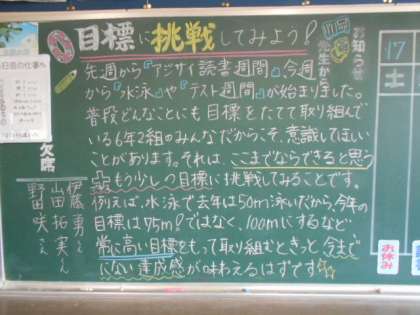 目標に挑戦してみよう!
先週から『アジサイ読書週間』、今週
から『水泳』や『テスト週間』が始まりました。
普段どんなことにも目標をたてて取り組んで
いる6年2組のみんなだからこそ、意識してほしい
ことがあります。それは、ここまでならできると思う
＋もう少しつ目標に挑戦してみることです。
例えば、水泳で去年は50m泳いだから今年の
目標は75m!ではなく、100mにするなど
常に高い目標をもって取り組むときっと今まで
にない達成感が味わえるはずです☆☆
お知らせ
先生から
17
土
お休み
欠席
伊藤 勇くん
山田 拓実くん
野田 咲さん